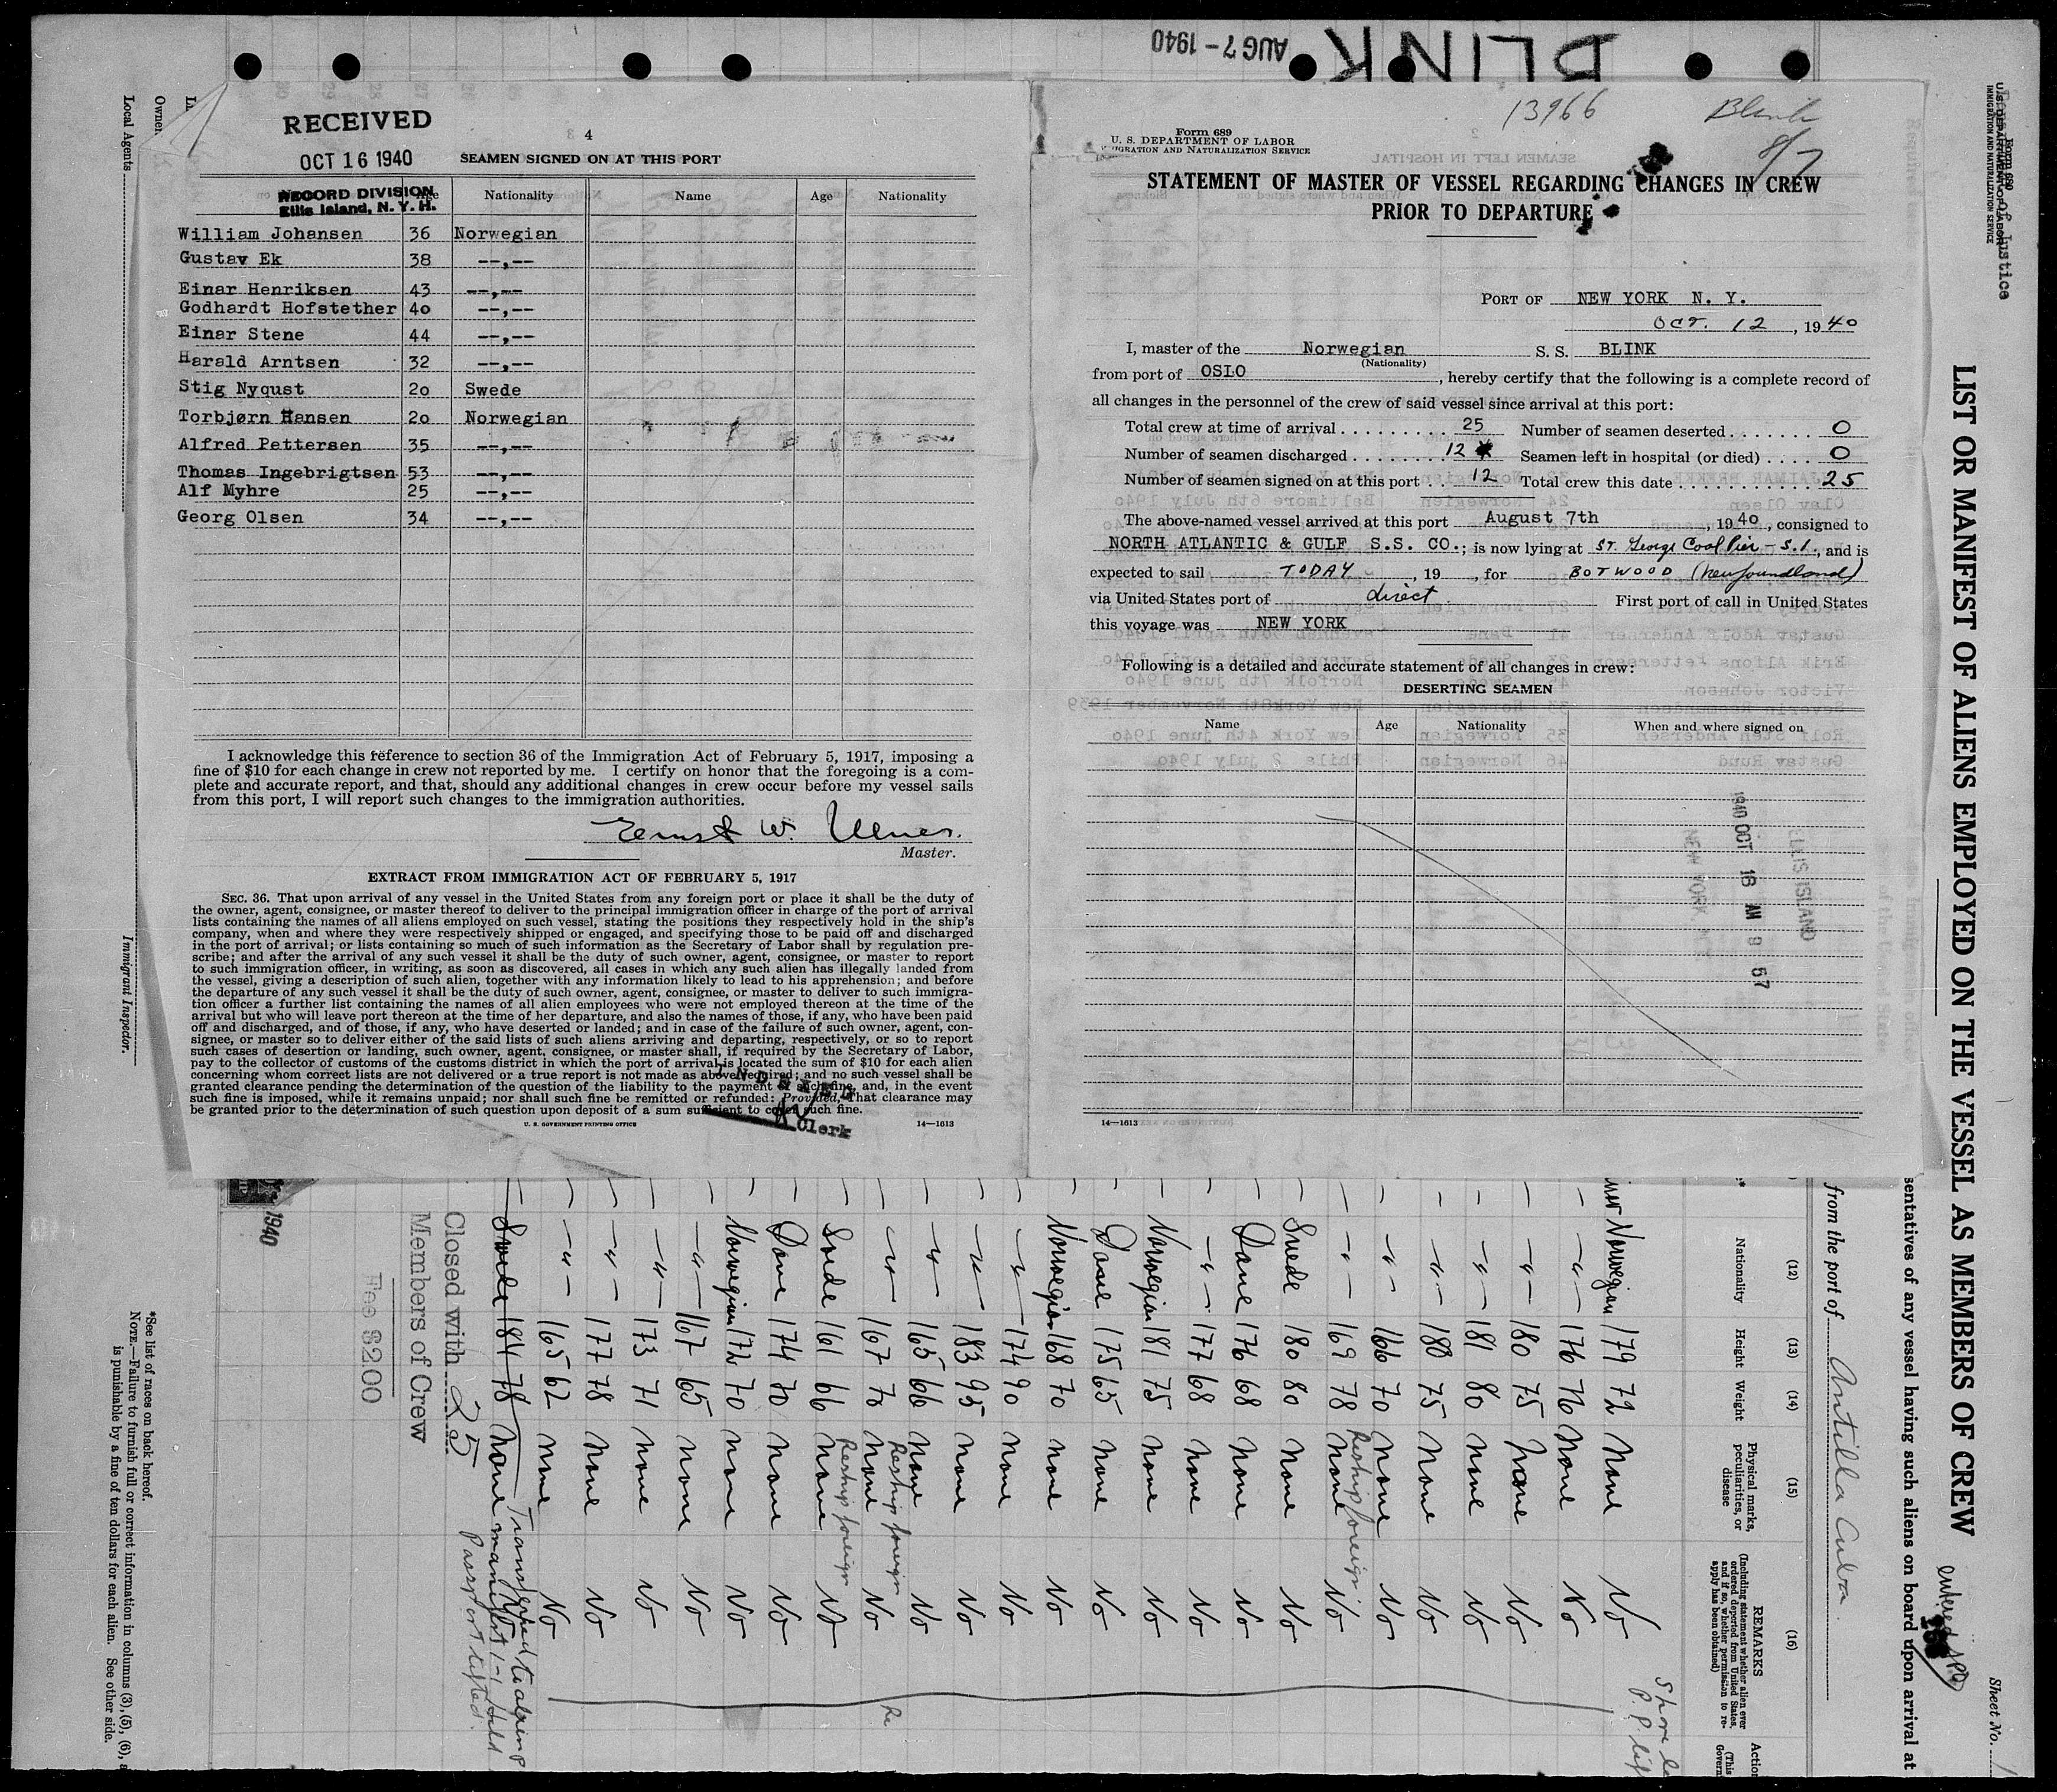 AUG 7 - 1940
BLINK
RECEIVED
OCT 16 1940
RECORD DIVISION
Ellis Island, N. Y. H.
4
SEAMEN SIGNED ON AT THIS PORT
Age Nationality Name Age Nationality
William Johansen 36 Norwegian
Gustav Ek 38 --,--
Einar Henriksen 43 --,--
Godhardt Hofstether 4o --,--
Einar Stene 44 --,--
Harald Arntsen 32 --,--
Stig Nyqust 2o Swede
Torbjørn Hansen 2o Norwegian
Alfred Pettersen 35 --,--
Thomas Ingebrigtsen 53 --,--
Alf Myhre 25 --,--
Georg Olsen 34 --,--
I acknowledge this reference to section 36 of the Immigration Act of February 5, 1917, imposing a
fine of $10 for each change in crew not reported by me. I certify on honor that the foregoing is a com-
plete and accurate report, and that, should any additional changes in crew occur before my vessel sails
from this port, I will report such changes to the immigration authorities.
Ernst W.
Master.
EXTRACT FROM IMMIGRATION ACT OF FEBRUARY 5, 1917
SEC. 36. That upon arrival of any vessel in the United States from any foreign port or place it shall be the duty of
the owner, agent, consignee, or master thereof to deliver to the principal immigration officer in charge of the port of arrival
lists containing the names of all aliens employed on such vessel, stating the positions they respectively hold in the ship's
company, when and where they were respectively shipped or engaged, and specifying those to be paid off and discharged
in the port of arrival; or lists containing so much of such information as the Secretary of Labor shall by regulation pre-
scribe; and after the arrival of any such vessel it shall be the duty of such owner, agent, consignee, or master to report
to such immigration officer, in writing, as soon as discovered, all cases in which any such alien has illegally landed from
the vessel, giving a description of such alien, together with any information likely to lead to his apprehension; and before
the departure of any such vessel it shall be the duty of such owner, agent, consignee, or master to deliver to such immigra-
tion officer a further list containing the names of all alien employees who were not employed thereon at the time of the
arrival but who will leave port thereon at the time of her departure, and also the names of those, if any, who have been paid
off and discharged, and of those, if any, who have deserted or landed; and in case of the failure of such owner, agent, con-
signee, or master so to deliver either of the said lists of such aliens arriving and departing, respectively, or so to report
such cases of desertion or landing, such owner, agent, consignee, or master shall, if required by the Secretary of Labor,
pay to the collector of customs of the customs district in which the port of arrival is located the sum of $10 for each alien
concerning whom correct lists are not delivered or a true report is not made as above required; and no such vessel shall be
granted clearance pending the determination of the question of the liability to the payment of such fine, and, in the event
such fine is imposed, while it remains unpaid; nor shall such fine be remitted or refunded: Provided, That clearance may
be granted prior to the determination of such question upon deposit of a sum sufficient to cover such fine.
Clerk
U. S. GOVERNMENT PRINTING OFFICE 14—1613
13966 Blink
8/7
Form 689
U. S. DEPARTMENT OF LABOR
IMMIGRATION AND NATURALIZATION SERVICE
STATEMENT OF MASTER OF VESSEL REGARDING CHANGES IN CREW
PRIOR TO DEPARTURE
PORT OF NEW YORK N. Y.
OCT. 12, 1940
I, master of the Norwegian S. S. BLINK
(Nationality)
from port of OSLO, hereby certify that the following is a complete record of
all changes in the personnel of the crew of said vessel since arrival at this port:
Total crew at time of arrival 25 Number of seamen deserted 0
Number of seamen discharged 12 Seamen left in hospital (or died) 0
Number of seamen signed on at this port 12 Total crew this date 25
The above-named vessel arrived at this port August 7th, 1940, consigned to
NORTH ATLANTIC & GULF S.S. CO.; is now lying at ST. George Coal Pier - S.I., and is
expected to sail TODAY, 19 , for BOTWOOD (Newfoundland)
via United States port of direct First port of call in United States
this voyage was NEW YORK
Following is a detailed and accurate statement of all changes in crew:
DESERTING SEAMEN
Name Age Nationality When and where signed on
1940 OCT 18 AM 9 57
ELLIS ISLAND
NEW YORK
14—1613
Local Agents
Owner
Immigrant Inspector.
Form 689
U.S. DEPARTMENT OF LABOR
of Justice
IMMIGRATION AND NATURALIZATION SERVICE
LIST OR MANIFEST OF ALIENS EMPLOYED ON THE VESSEL AS MEMBERS OF CREW
Sheet No. 1
entered
sentatives of any vessel having such aliens on board upon arrival at
from the port of Antilla Cuba
(12) (13) (14) (15) (16)
Nationality Height Weight Physical marks, peculiarities, or disease
REMARKS
(Including statement whether alien ever ordered deported from United States, and if so, whether permission to reapply has been obtained)
Norwegian 179 72 None No
-"- 176 76 None No
-"- 180 75 None No
-"- 181 80 None No
-"- 180 75 None No
-"- 166 70 None No
-"- 169 78 None No
Reship foreign
Swede 180 80 None No
Dane 176 68 None No
-"- 177 68 None No
Norwegian 181 75 None No
Dane 175 65 None No
Norwegian 168 70 None No
-"- 174 90 None No
-"- 183 95 None No
-"- 165 66 None No
Reship foreign
-"- 167 70 None No
Reship foreign
Swede 161 66 None No
Dane 174 70 None No
Norwegian 172 70 None No
-"- 167 65 None No
-"- 173 71 None No
-"- 177 78 None No
-"- 165 62 None No
Swede 184 78 None
Transferred to alien P
manifest 1-1 Held
Passport lifted.
Closed with 25
Members of Crew
Fee $2.00
1940
*See list of races on back hereof.
NOTE.—Failure to furnish full or correct information in columns (3), (5), (6),
is punishable by a fine of ten dollars for each alien. See other side.